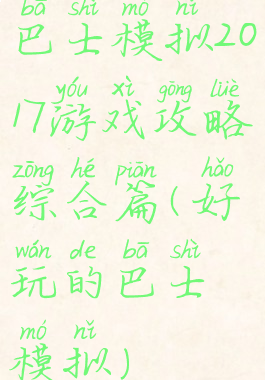 bā shì mó nǐ
巴士模拟20
yóu xì gōng lüè
17游戏攻略
zōng hé piān hǎo
综合篇(好
wán de bā shì
玩的巴士
mó nǐ
模拟)